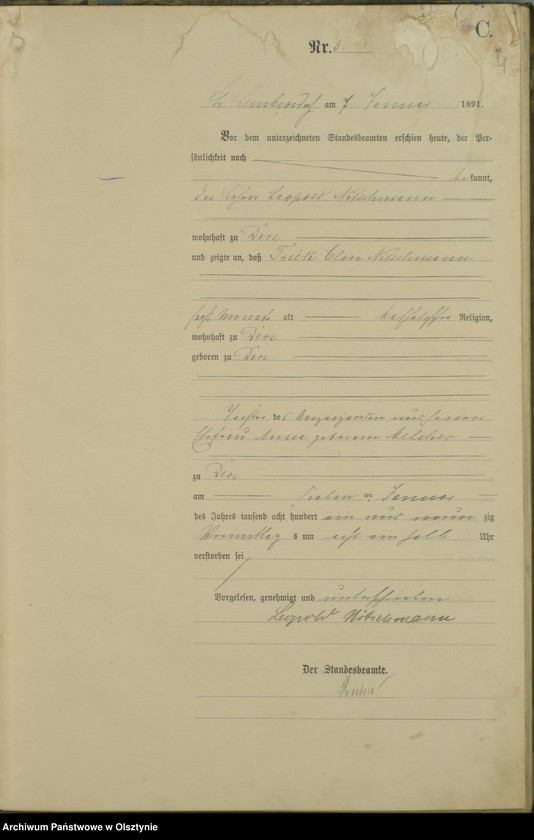 C.
4
Nr. 3.
am 7 Januar 1891.
Vor dem unterzeichneten Standesbeamten erschien heute, der Per-
sönlichkeit nach
bekannt,
der Leopold
wohnhaft zu
und zeigte an, daß Clara
sechs Monate alt katholischer Religion,
wohnhaft zu
geboren zu
Tochter des Anzeigenden und seiner
Ehefrau Anna geborenen Melcher
zu
am sieben ten Januar
des Jahres tausend acht hundert ein und neun zig
Vormittag s um acht ein halb Uhr
verstorben sei
Vorgelesen, genehmigt und unterschrieben
Leopold
Der Standesbeamte.
Archiwum Państwowe w Olsztynie